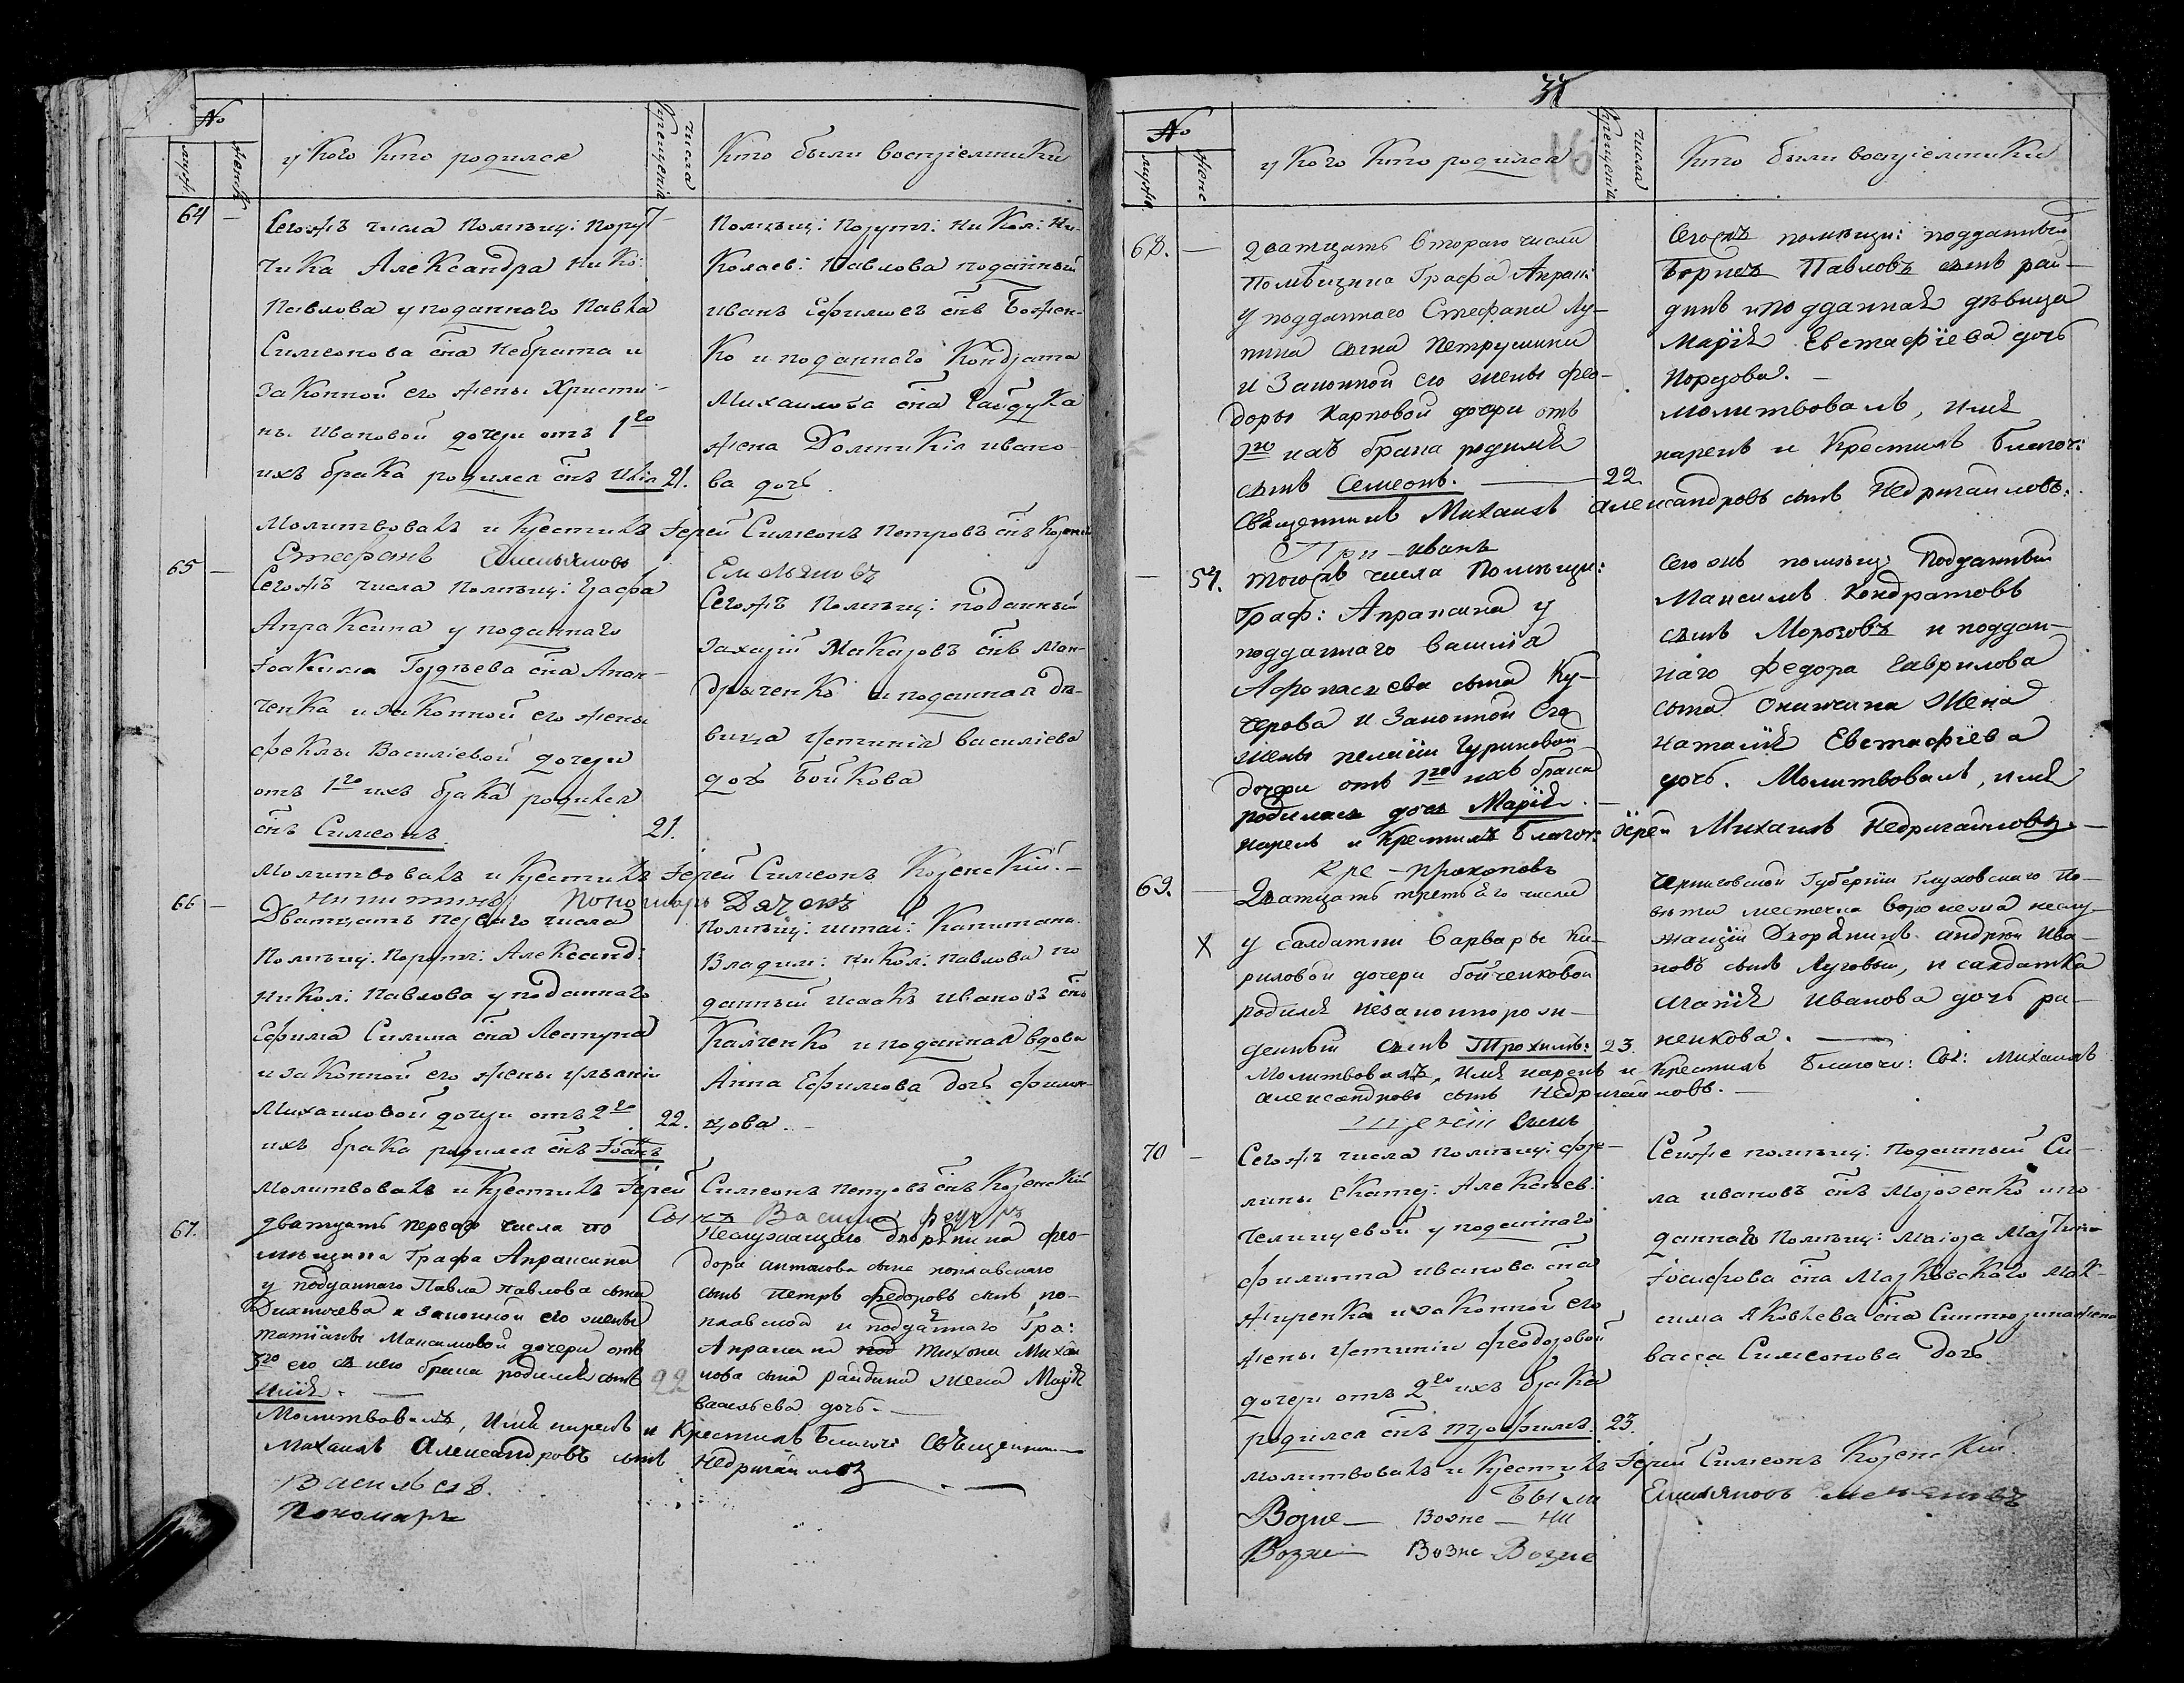 №
мужск.
женск.
у Кого кто родился
числа
Крещенія
Кто были воспріемники
64 —
Сегожъ числа Помѣщ: Пору-
чика Александра Нико:
Павлова у поданнаго Павла
Симеонова сна Небрата и
законной его жены Христи-
ны Ивановой дочери отъ 1го
ихъ брака родился снъ Илія 21.
Помѣщ: Порутч: Никол: Ни-
колаев: Павлова поданный
иванъ Ефимовъ снъ Божен-
ко и поданного Кондрата
Михаилова сна Гайдука
жена Домникія ивано
ва дочь.
Молитвовалъ и Крестилъ Іерей Симеонъ Петровъ снъ
Стефанъ Емельяновъ Емельяновъ
65 —
Сегожъ числа Помѣщ: Графа
Апраксина у поданнаго
Іоакима Гордѣева сна Апан-
ченка и законной его жены
Феклы Василіевой дочери
отъ 1го ихъ брака родился
снъ Симеонъ. 21.
Сегожъ Помѣщ: поданный
Захарій Макаровъ снъ Ман-
дрыченко и поданная дѣ-
вица Устинія Василіева
дочь Бойкова
Молитвовалъ и Крестилъ Іерей Симеонъ Коренскій. —
Пономарь Дячекъ
66 —
Дватцать первого числа
Помѣщ: Порутч: Александ:
Никол: Павлова у поданнаго
Ефима Силина сна Лестуна
и законной его жены Ульяніи
Михаиловой дочери отъ 2го 22.
ихъ брака родился снъ Іоанъ
Помѣщ: штаб: Капитана
Владим: Никол: Павлова по
данный Исаакъ Ивановъ снъ
Калченко и поданная вдова
Анна Ефимова дочь Филон-
цова. —
Молитвовалъ и Крестилъ Іерей Симеонъ Петровъ снъ Коренскій
Сынъ
67.
дватцать первого числа по
мѣщика Графа Апраксина
у подданнаго Павла Павлова сына
Дихтичева и законной его жены
татіаны Максимовой дочери отъ
3го его съ нею брака родился сынъ 22
Илія. —
Неслужащаго дворянина фео-
дора антонова сына поплавского
сынъ Петръ федоровъ сынъ по-
плавской и подданнаго Гра:
Апраксина под тихона Михаи
лова сына райдина жена Марія
васильева дочь. —
Молитвовалъ, имя нарекъ и Крестилъ Благоч: священникъ
Михаилъ Александровъ сынъ Недригайловъ
Васильевъ.
Пономарь
№
мужск.
женс
у Кого кто родился
16
числа
Крещенія
Кто были воспріемники
68. —
дватцать втораго числа
Помѣщика Графа Апрак:
у подданнаго Стефана Лу-
кина сына Петрушина
и Законной его жены фео-
доры Карповой дочери отъ
1го ихъ брака родился
сынъ Семеонъ. — 22.
Сегожъ помѣщи: подданный
Борисъ Павловъ сынъ рай-
динъ и подданная дѣвица
Марія Евстафіева дочь
Порусова. —
молитвовалъ, имя
нарекъ и Крестилъ Благоч:
Священникъ Михаилъ Александровъ сынъ Недригайловъ.
При - иванъ
— 57.
тогожъ числа Помѣщи:
Граф: Апраксина у
подданнаго василія
Афонасиева сына Ку-
черова и Законной его
жены пелагіи Гуриновой
дочери отъ 1го ихъ брака
родилась дочь Марія. —
Сегожъ помѣщ: Подданный
Максимъ Кондратовъ
сынъ Морозовъ и поддан-
наго Федора Гаврилова
сына Онижина Жена
наталія Евстафіева
дочь. Молитвовалъ, имя
нарекъ и Крестилъ Благоч: Іерей Михаилъ Недригайловъ —
Кре - прокоповъ
69. —
Х
Дватцать третьяго числа
у салдатки Варвары Ки-
риловой дочери бойченковой
родился незаконнорож-
денный сынъ Трохимъ: 23.
Черниговской Губерніи Глуховскаго По-
вѣта местечка Воронежа неслу-
жащій Дворянинъ андрей Ива-
новъ сынъ Луговый, и салдатка
Иванова дочь ра-
ненкова. —
Молитвовалъ, имя нарекъ и Крестилъ Благочи: Свя: Михаилъ
Александровъ сынъ Недригайловъ. —
сынъ
70 —
Сегожъ числа помѣщ: фре-
лины Екатер: Алексѣев:
Челищевой у поданнаго
филиппа иванова сна
Жиренка и законной его
жены Устиніи Феодоровой
дочери отъ 2го ихъ брака
родился снъ трофимъ. 23.
Сейже помѣщ: Поданный Си-
ла ивановъ снъ Морозенко и по
даннаго Помѣщ: Маіора Мартина
Іосифова сна Марковскаго Мак-
сима Яковлева сна жена
васса Симеонова дочь
молитвовалъ и Крестилъ Іерей Симеонъ Коренскій.
Были Емельяновъ
Возне — Возне — Ни
Возне — Возне Возне